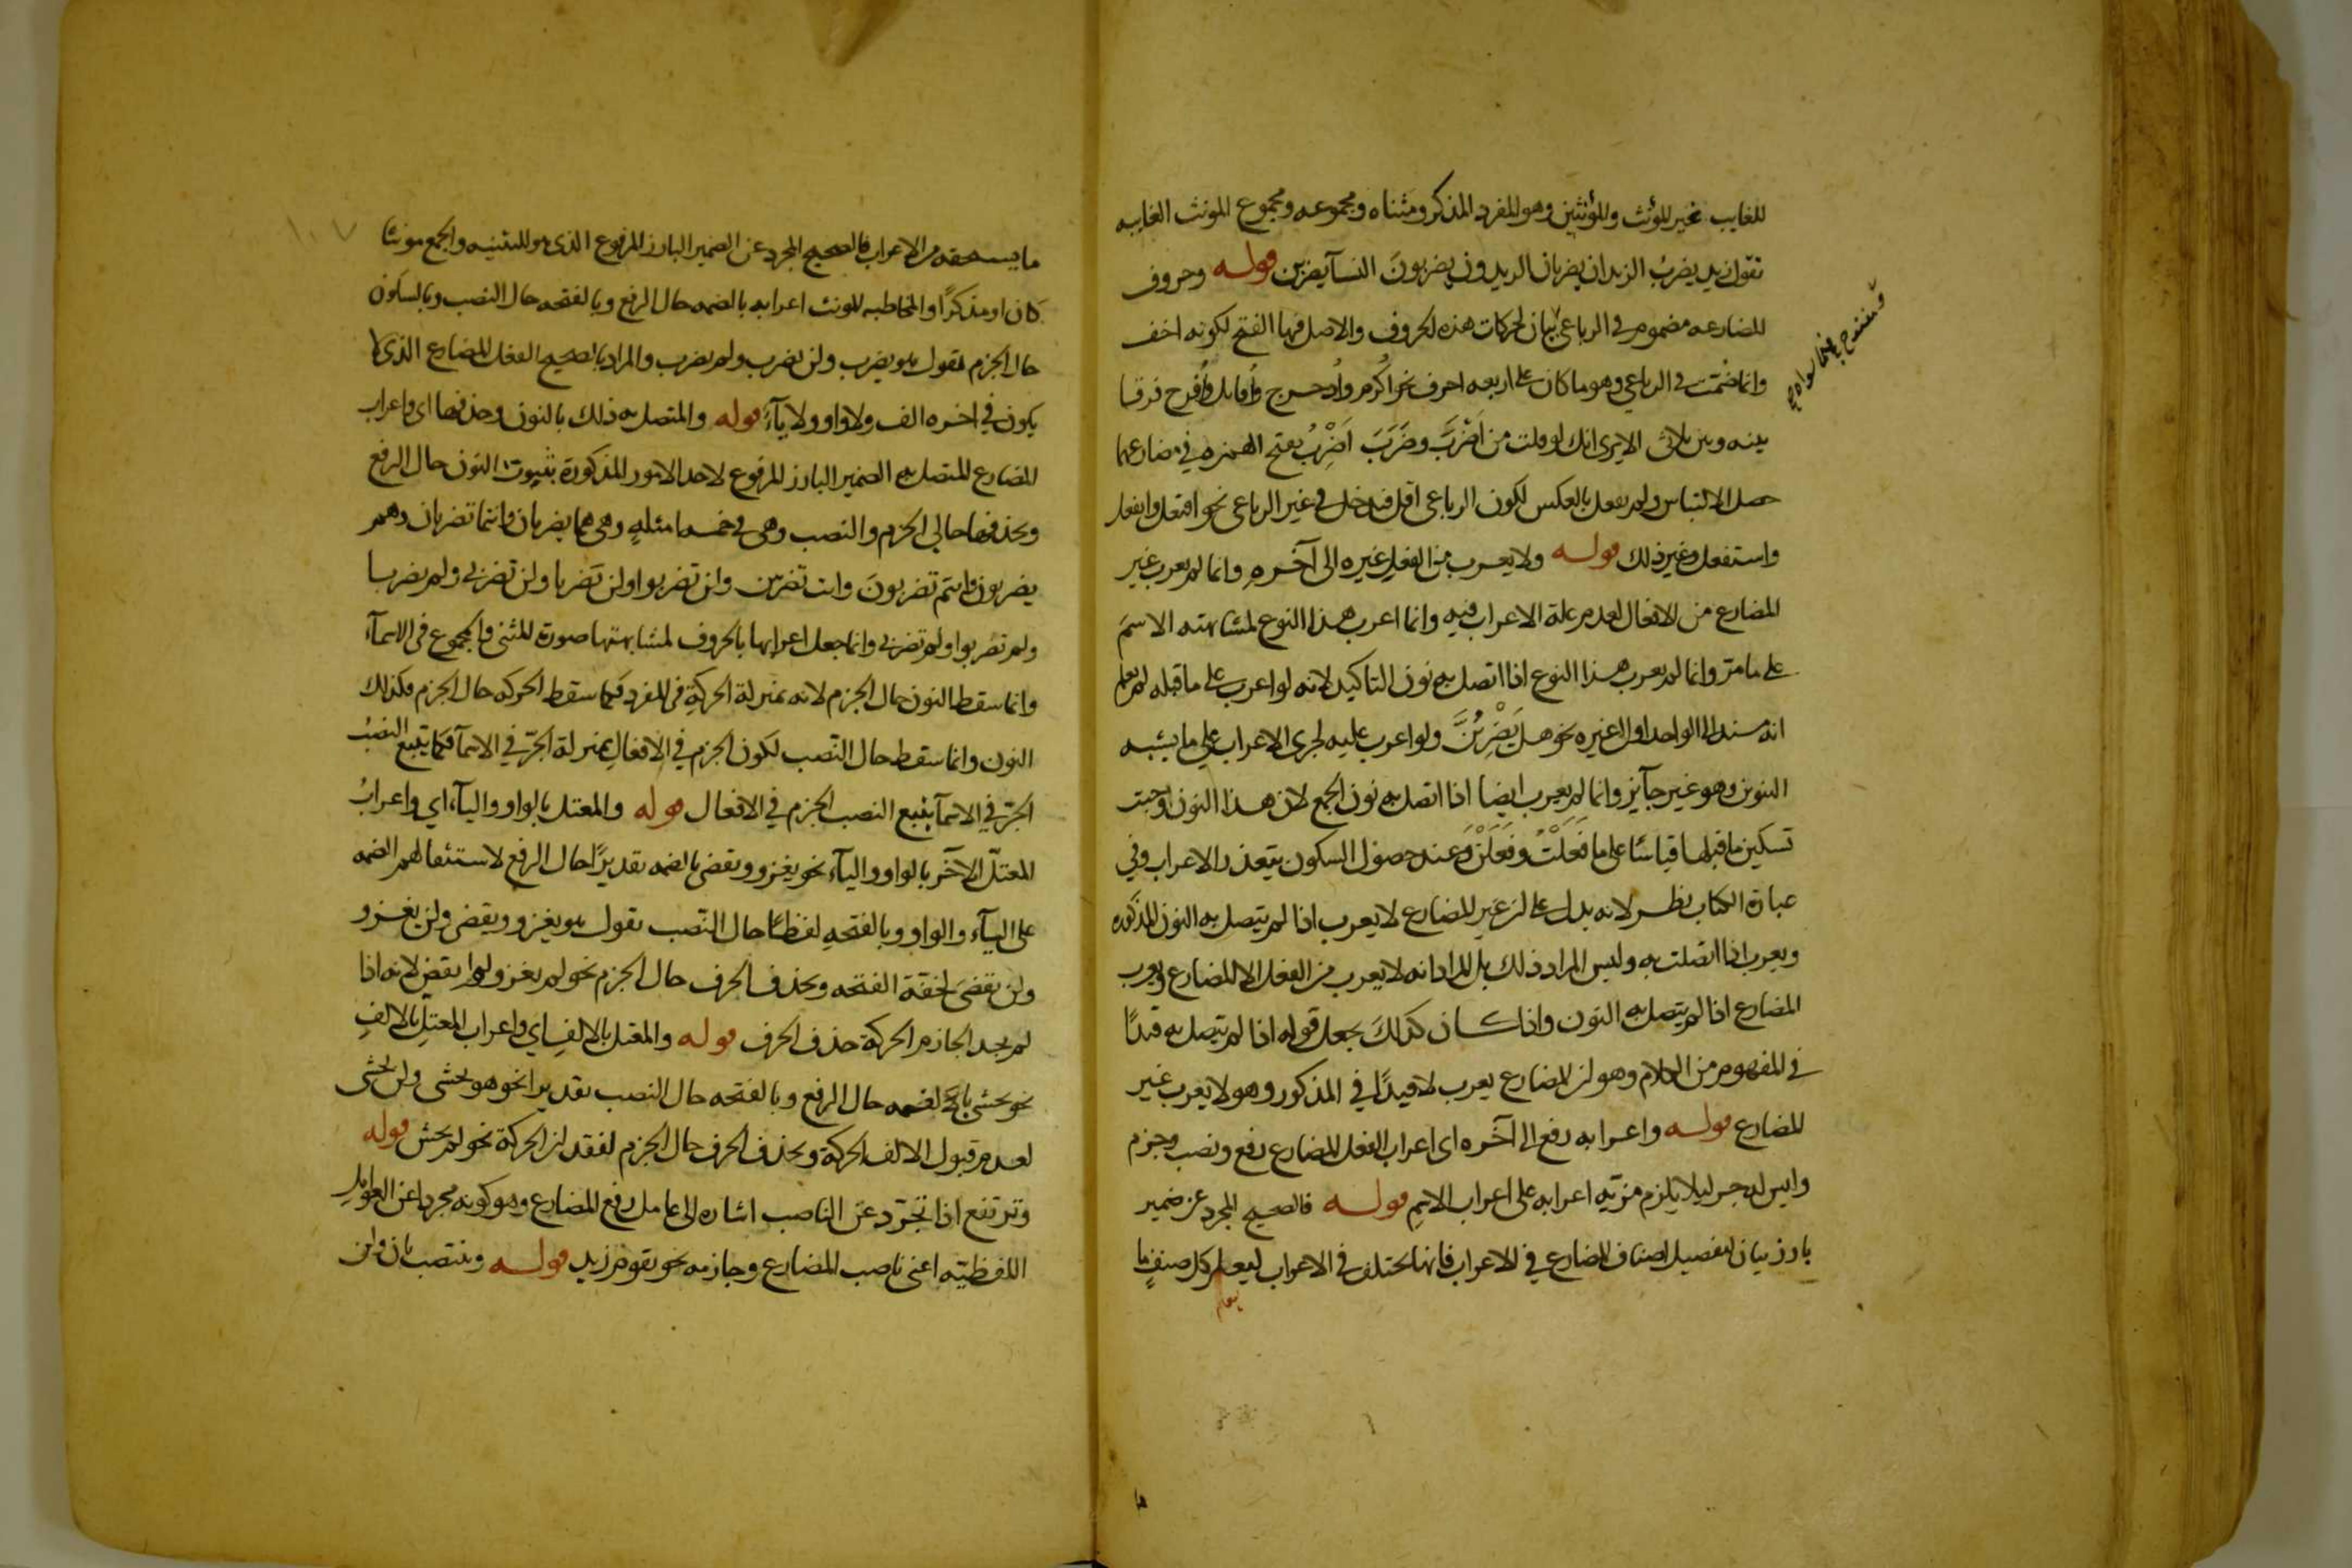 للغايب غير المؤنث والمؤنثين وهو المفرد المذكر ومثناه ومجموعه ومجموع المونث الغايبه
تقول زيد يضربُ الزيدان يضربان الزيدون يضربونَ النسآ يضربن قوله وحروف
المضارعه مضموم في الرباعي بيان لحركات هذه الحروف والاصل فيها الفتح لكونه اخف
ومفتوح فيما سواه
وانما ضمّت في الرباعي وهو ما كان على اربعه احرف نحو اُكرم واُدحرج واُقاتل واُفرح فرقا
بينه وبين ثلاثى الا يرى انك لو قلت من اَضْرَبَ وضَرَبَ اَضْرِبُ بفتح الهمزه في مضارعهما
حصل الالتباس ولم يفعل بالعكس لكون الرباعى اقل فدخل في غير الرباعى نحو افتعل وانفعل
واستفعل وغير ذلك قوله ولا يعرب من الفعل غيره الى آخره وانما لم يعرب غير
المضارع من الافعال لعدم علة الاعراب فيه وانما اعرب هذا النوع لمشابهته الاسمَ
على ما مرّ وانما لم يعرب هذا النوع اذا اتصل به نون التاكيد لانه لو اعرب على ما قبله لم يعلم
انه مسند الى الواحد او الى غيره نحو هل يَضْرِبُنَّ ولو اعرب عليه لجرى الاعراب على ما يشبه
التنوين وهو غير جآيز وانما لم يعرب ايضا اذا اتصل به نون الجمع لان هذا النون اوجبت
تسكين ما قبلها قياسًا على ما فَعَلْتُ وفَعَلْنَ وعند حصول السكون يتعذر الاعراب وفي
عبارة الكتاب نظر لانه يدل على ان غير المضارع لا يعرب اذا لم يتصل به النون المذكوره
ويعرب اذا اتصلت به وليس المراد ذلك بل المراد انه لا يعرب من الفعل الا المضارع ويعرب
المضارع اذا لم يتصل به النون واذا كان كذلكَ يجعل قوله اذا لم يتصل به قيدًا
في المفهوم من الكلام وهو ان المضارع يعرب لا قيدًا في المذكور وهو لا يعرب غير
المضارع قوله واعرابه رفع الى آخره اى اعراب الفعل المضارع رفع ونصب وجزم
وليس له جر ليلا يلزم مزيّه اعرابه على اعراب الاسمِ قوله فالصحيح المجرد عن ضمير
بارز بيان لتفصيل اصناف المضارع في الاعراب فانها تختلف في الاعراب ليعلم كل صنفٍ ما
يعلم
١٠٧
ما يستحقه من الاعراب فالصحيح المجرد عن الضمير البارز المرفوع الذى هو للتثنيه والجمع مونثا
كان او مذكرًا والمخاطبه المونث اعرابه بالضمه حال الرفع وبالفتحه حال النصب وبالسكون
حال الجزم تقول هو يضرب ولن يضرب ولم يضرب والمراد بالصحيح الفعل المضارع الذى لا
يكون في اخره الف ولا واو ولا يآءٌ قوله والمتصل به ذلك بالنون وحذفها اى واعراب
المضارع المتصل به الضمير البارز المرفوع لاحد الامور المذكورة بثبوت النون حال الرفع
وبحذفها حالي الجزم والنصب وهى في خمسه امثلهٍ وهى هما يضربان وانتما تضربان وهم
يضربون وانتم تضربونَ وانت تضربين ولن تضربوا ولن تَضربا ولن تضربى ولم يضربا
ولم تضربوا ولم تضربى وانما جعل اعرابها بالحروف لمشابهتها صورة المثنى والمجموع فى الاسمآءِ
وانما سقط النون حال الجزم لانه بمنزلة الحركةِ فى المفرد فكما سقط الحركه حال الجزم فكذلك
النون وانما سقط حال النّصب لكون الجزم في الافعالِ بمنزلة الجرّ في الاسمآ فكما يتبع النصبُ
الجرّ في الاسمآ يتبع النصب الجزم في الافعال قوله والمعتل بالواو واليآء اي واعرابُ
المعتلّ الآخر بالواو واليآء نحو يغزو ويقضى بالضمه تقديرًا حال الرفع لاستثقالهم الضمه
على اليآء والواو وبالفتحهِ لفظًا حال النّصب تقول هو يغزو ويقضى ولن يغزو
ولن يقضىَ لخفّة الفتحه وبحذف الحرف حال الجزم نحو لم يغز ولم يقض لانه اذا
لم يجد الجازم الحركة حذف الحرف قوله والمعتل بالالفِ اي واعراب المعتلِّ بالالفِ
نحو يخشى بالضمه حال الرفع وبالفتحه حال النصب تقديرا نحو هو يخشى ولن يخشى
لعدم قبول الالف الحركة وبحذف الحرف حال الجزم لفقدان الحركة نحو لم يخش قوله
وترتفع اذا تجرّد عن الناصب اشاره الى عامل رفع المضارع وهو كونه مجردا عن العوامل
اللفظيّه اعنى ناصب المضارع وجازمه نحو يقوم زيد قوله وينتصب بان ولن